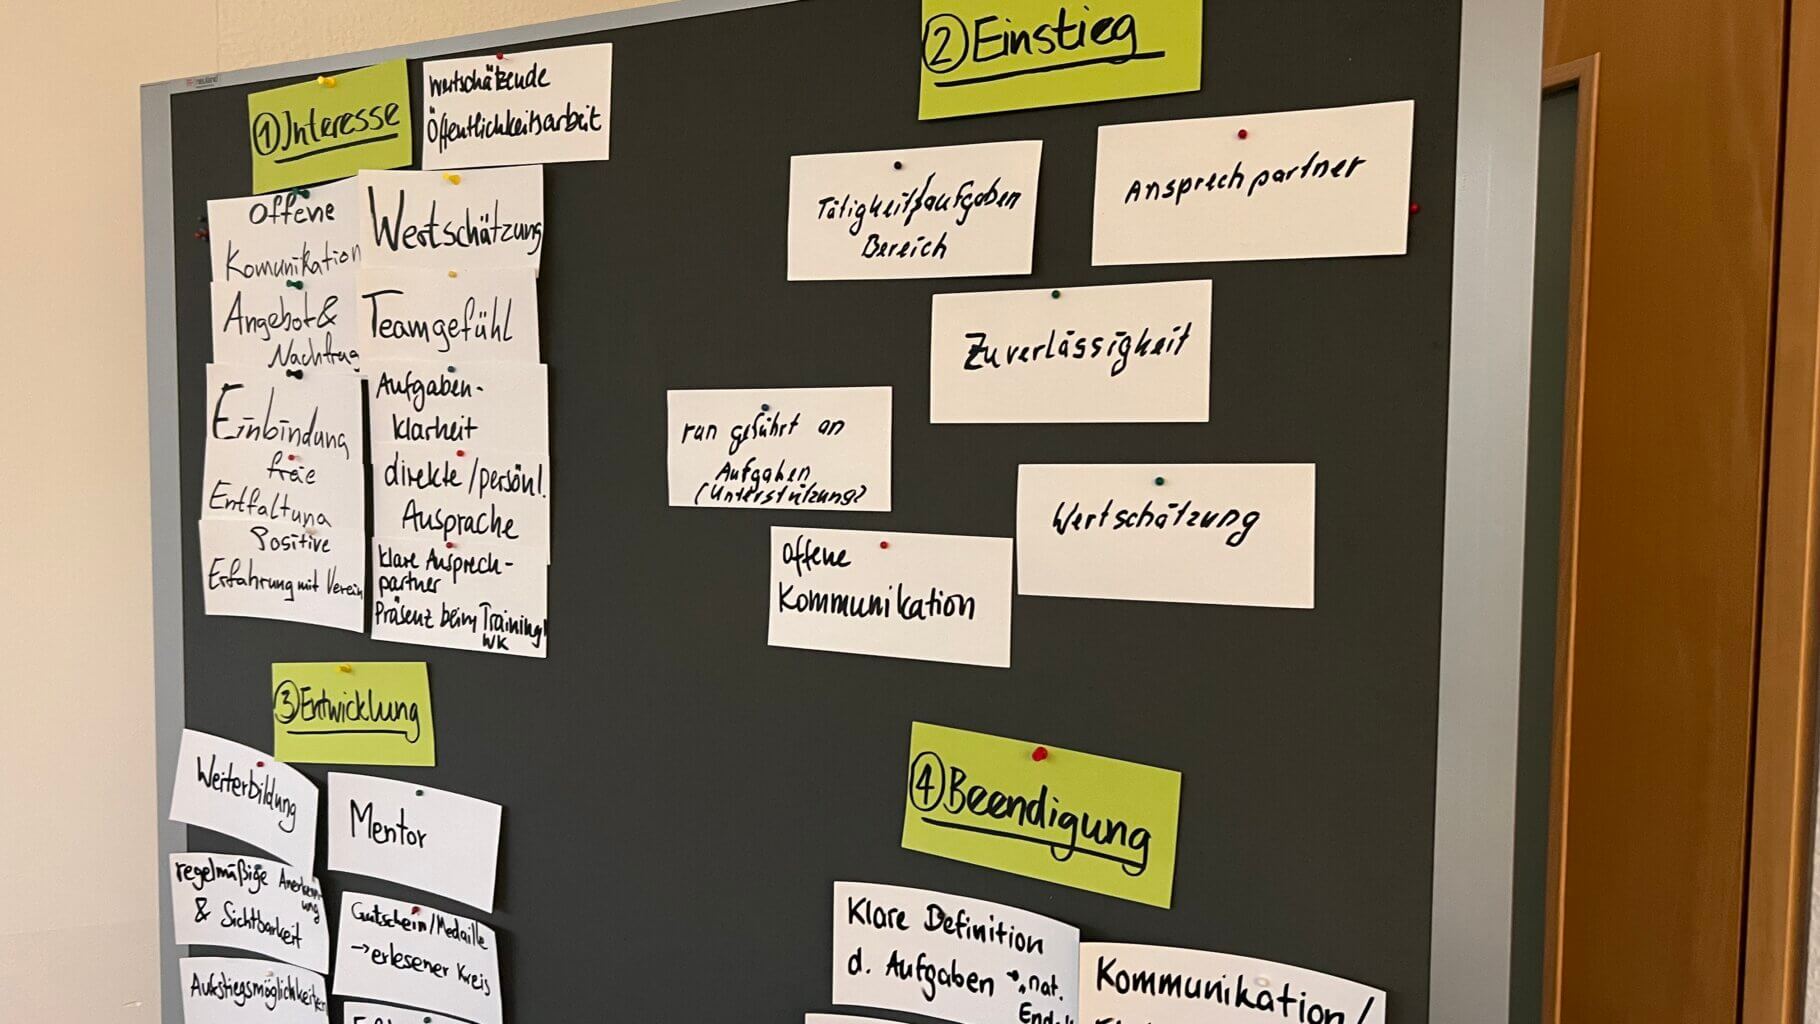 neuland
① Interesse
Wertschätzende
Öffentlichkeitsarbeit
Offene
Komunikation
Angebot &
Nachfrag
Einbindung
freie
Entfaltung
Positive
Erfahrung mit Verein
Wertschätzung
Teamgefühl
Aufgaben-
klarheit
direkte/persönl.
Ausprache
klare Ansprech-
partner
Präsenz beim Training/
WK
② Einstieg
Tätigkeits/aufgaben
Bereich
Ansprechpartner
Zuverlässigkeit
ran geführt an
Aufgaben
(Unterstützung)
Wertschätzung
offene
Kommunikation
③ Entwicklung
Weiterbildung
Mentor
regelmäßige Anerkenn
ung
& Sichtbarkeit
Gutschein/Medaille
→ erlesener Kreis
Aufstiegsmöglichkeiten
④ Beendigung
Klare Definition
d. Aufgaben → nat.
Kommunikation/